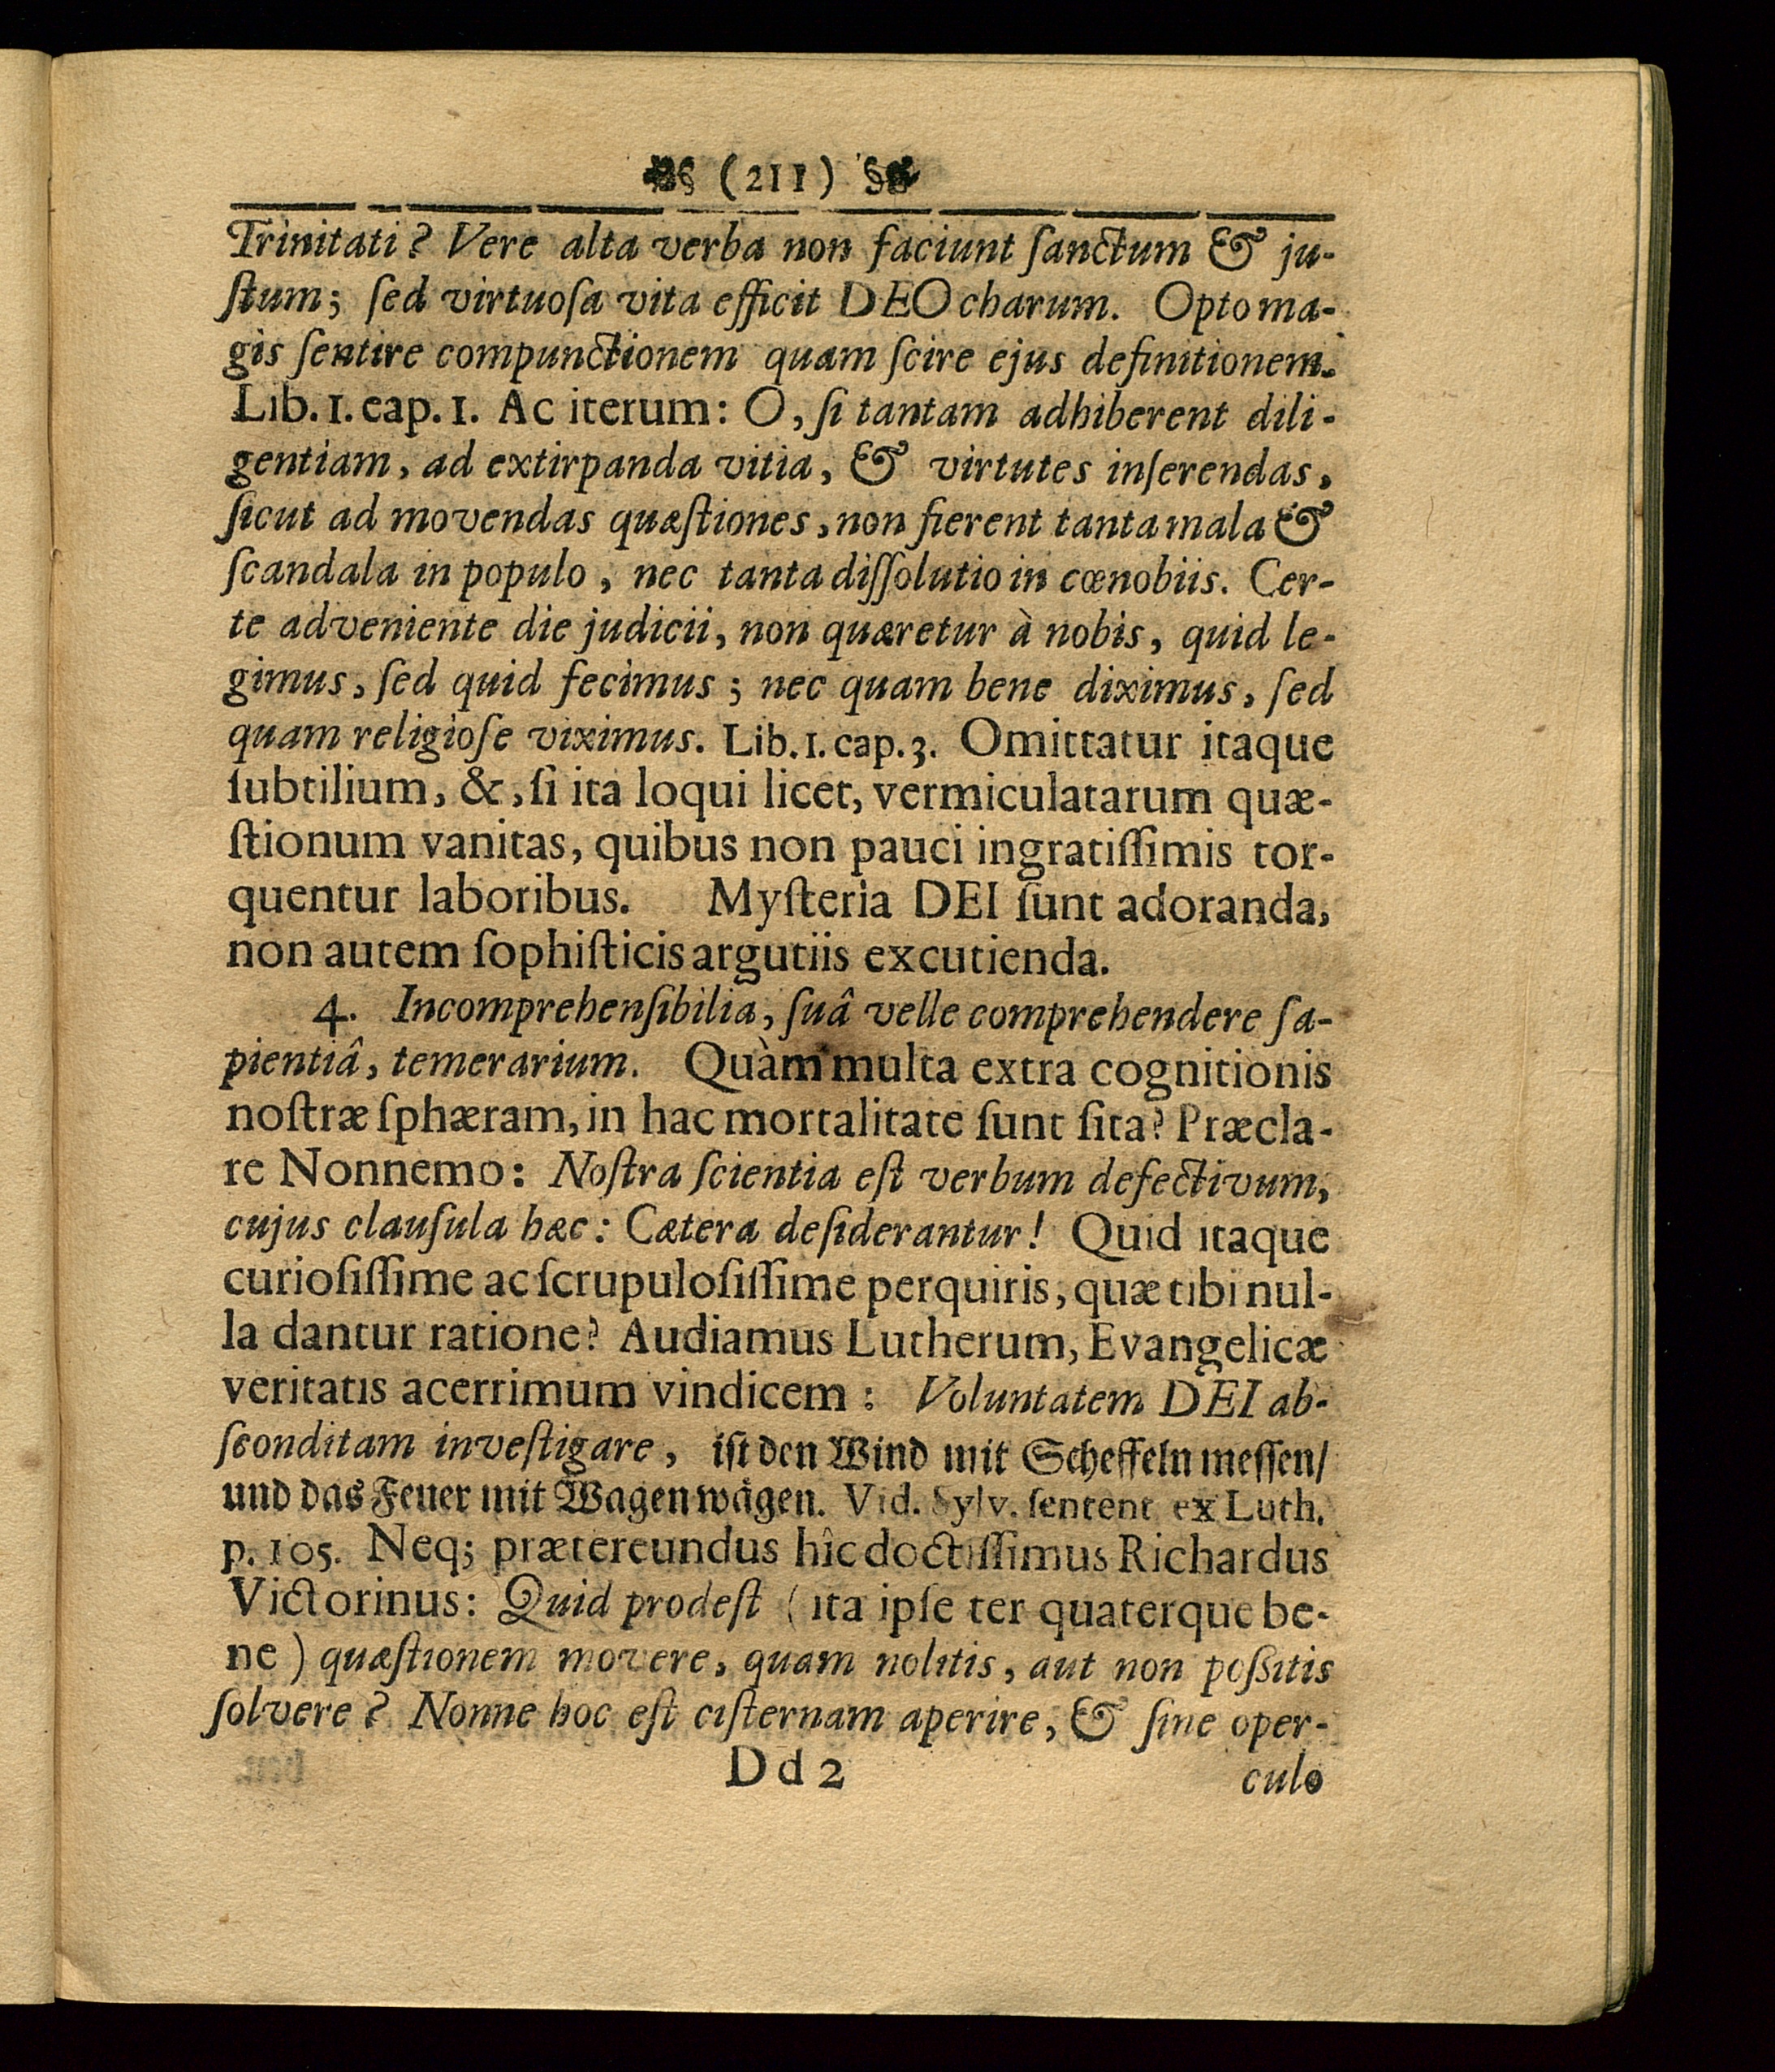 (211)
Trinitati? Vere alta verba non faciunt ſanctum & ju-
ſtum; ſed virtuoſa vita efficit DEO charum. Opto ma-
gis ſentire compunctionem quam ſcire ejus definitionem.
Lib. 1. cap. 1. Ac iterum: O, ſi tantam adhiberent dili-
gentiam, ad extirpanda vitia, & virtutes inſerendas,
ſicut ad movendas quæſtiones, non fierent tanta mala &
ſcandala in populo, nec tanta diſſolutio in cœnobiis. Cer-
te adveniente die judicii, non quæretur à nobis, quid le-
gimus, ſed quid fecimus; nec quam bene diximus, ſed
quam religioſe viximus. Lib. 1. cap. 3. Omittatur itaque
ſubtilium, &, ſi ita loqui licet, vermiculatarum quæ-
ſtionum vanitas, quibus non pauci ingratiſſimis tor-
quentur laboribus. Myſteria DEI ſunt adoranda,
non autem ſophiſticis argutiis excutienda.
4. Incomprehenſibilia, ſuâ velle comprehendere ſa-
pientiâ, temerarium. Quàm multa extra cognitionis
noſtræ ſphæram, in hac mortalitate ſunt ſita? Præcla-
re Nonnemo: Noſtra ſcientia eſt verbum defectivum,
cujus clauſula hæc: Cætera deſiderantur! Quid itaque
curioſiſſime ac ſcrupuloſiſſime perquiris, quæ tibi nul-
la dantur ratione? Audiamus Lutherum, Evangelicæ
veritatis acerrimum vindicem: Voluntatem DEI ab-
ſconditam inveſtigare, iſt den Wind mit Scheffeln meſſen/
und das Feuer mit Wagen wägen. Vid. Sylv. ſentent ex Luth.
p. 105. Neq; prætereundus hîc doctiſſimus Richardus
Victorinus: Quid prodeſt (ita ipſe ter quaterque be-
ne) quæſtionem movere, quam nolitis, aut non poſſitis
ſolvere? Nonne hoc eſt ciſternam aperire, & ſine oper-
Dd 2 culo